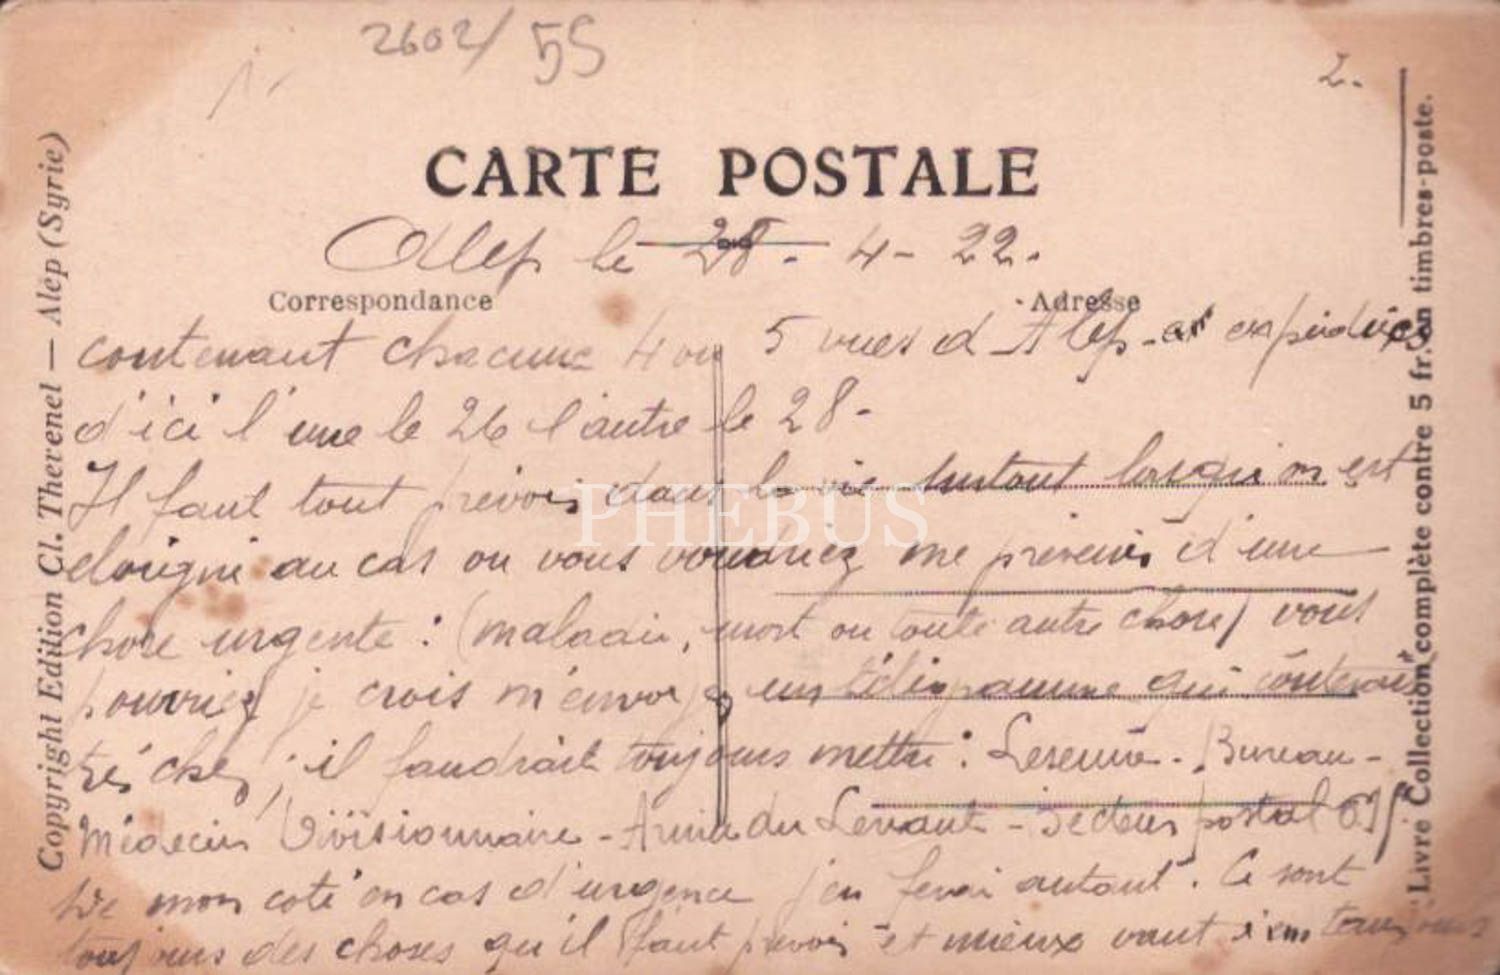 2602/ 55
2.
CARTE POSTALE
Alep le 28. 4-22.
Correspondance
Adresse
contenant chacune 4 ou 5 vues d'Alep
d'ici l'une le 26 l'autre le 28-
Il faut tout prévoir dans la vie surtout lorsqu'on est
éloigné au cas ou vous voudriez me prévenir d'une
chose urgente: (maladie, mort ou toute autre chose) vous
pourriez je crois m'envoyer un télégramme qui
très cher; il faudrait toujours mettre: Bureau-
Médecin Divisionnaire - Armée du Levant - Secteur postal
De mon coté en cas d'urgence j'en ferai autant. Ce sont
toujours des choses qu'il faut prévoir et mieux vaut toujours
PHEBUS
Copyright Edition Cl. Therenel — Alep (Syrie)
Livre Collection complète contre 5 fr. en timbres-poste.